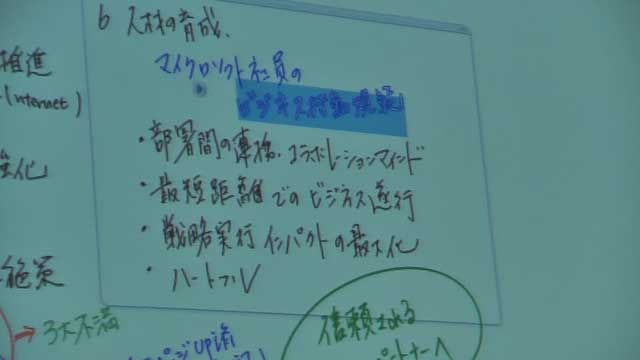 6 人材の育成、
マイクロソフト社員の
ビジネス行動規範
・部署間の連携、コラボレーションマインド
・最短距離でのビジネス遂行
・戦略実行インパクトの最大化
・ハートフル
推進
(Internet)
強化
施策
→3大不満
UP
信頼される
パートナーへ